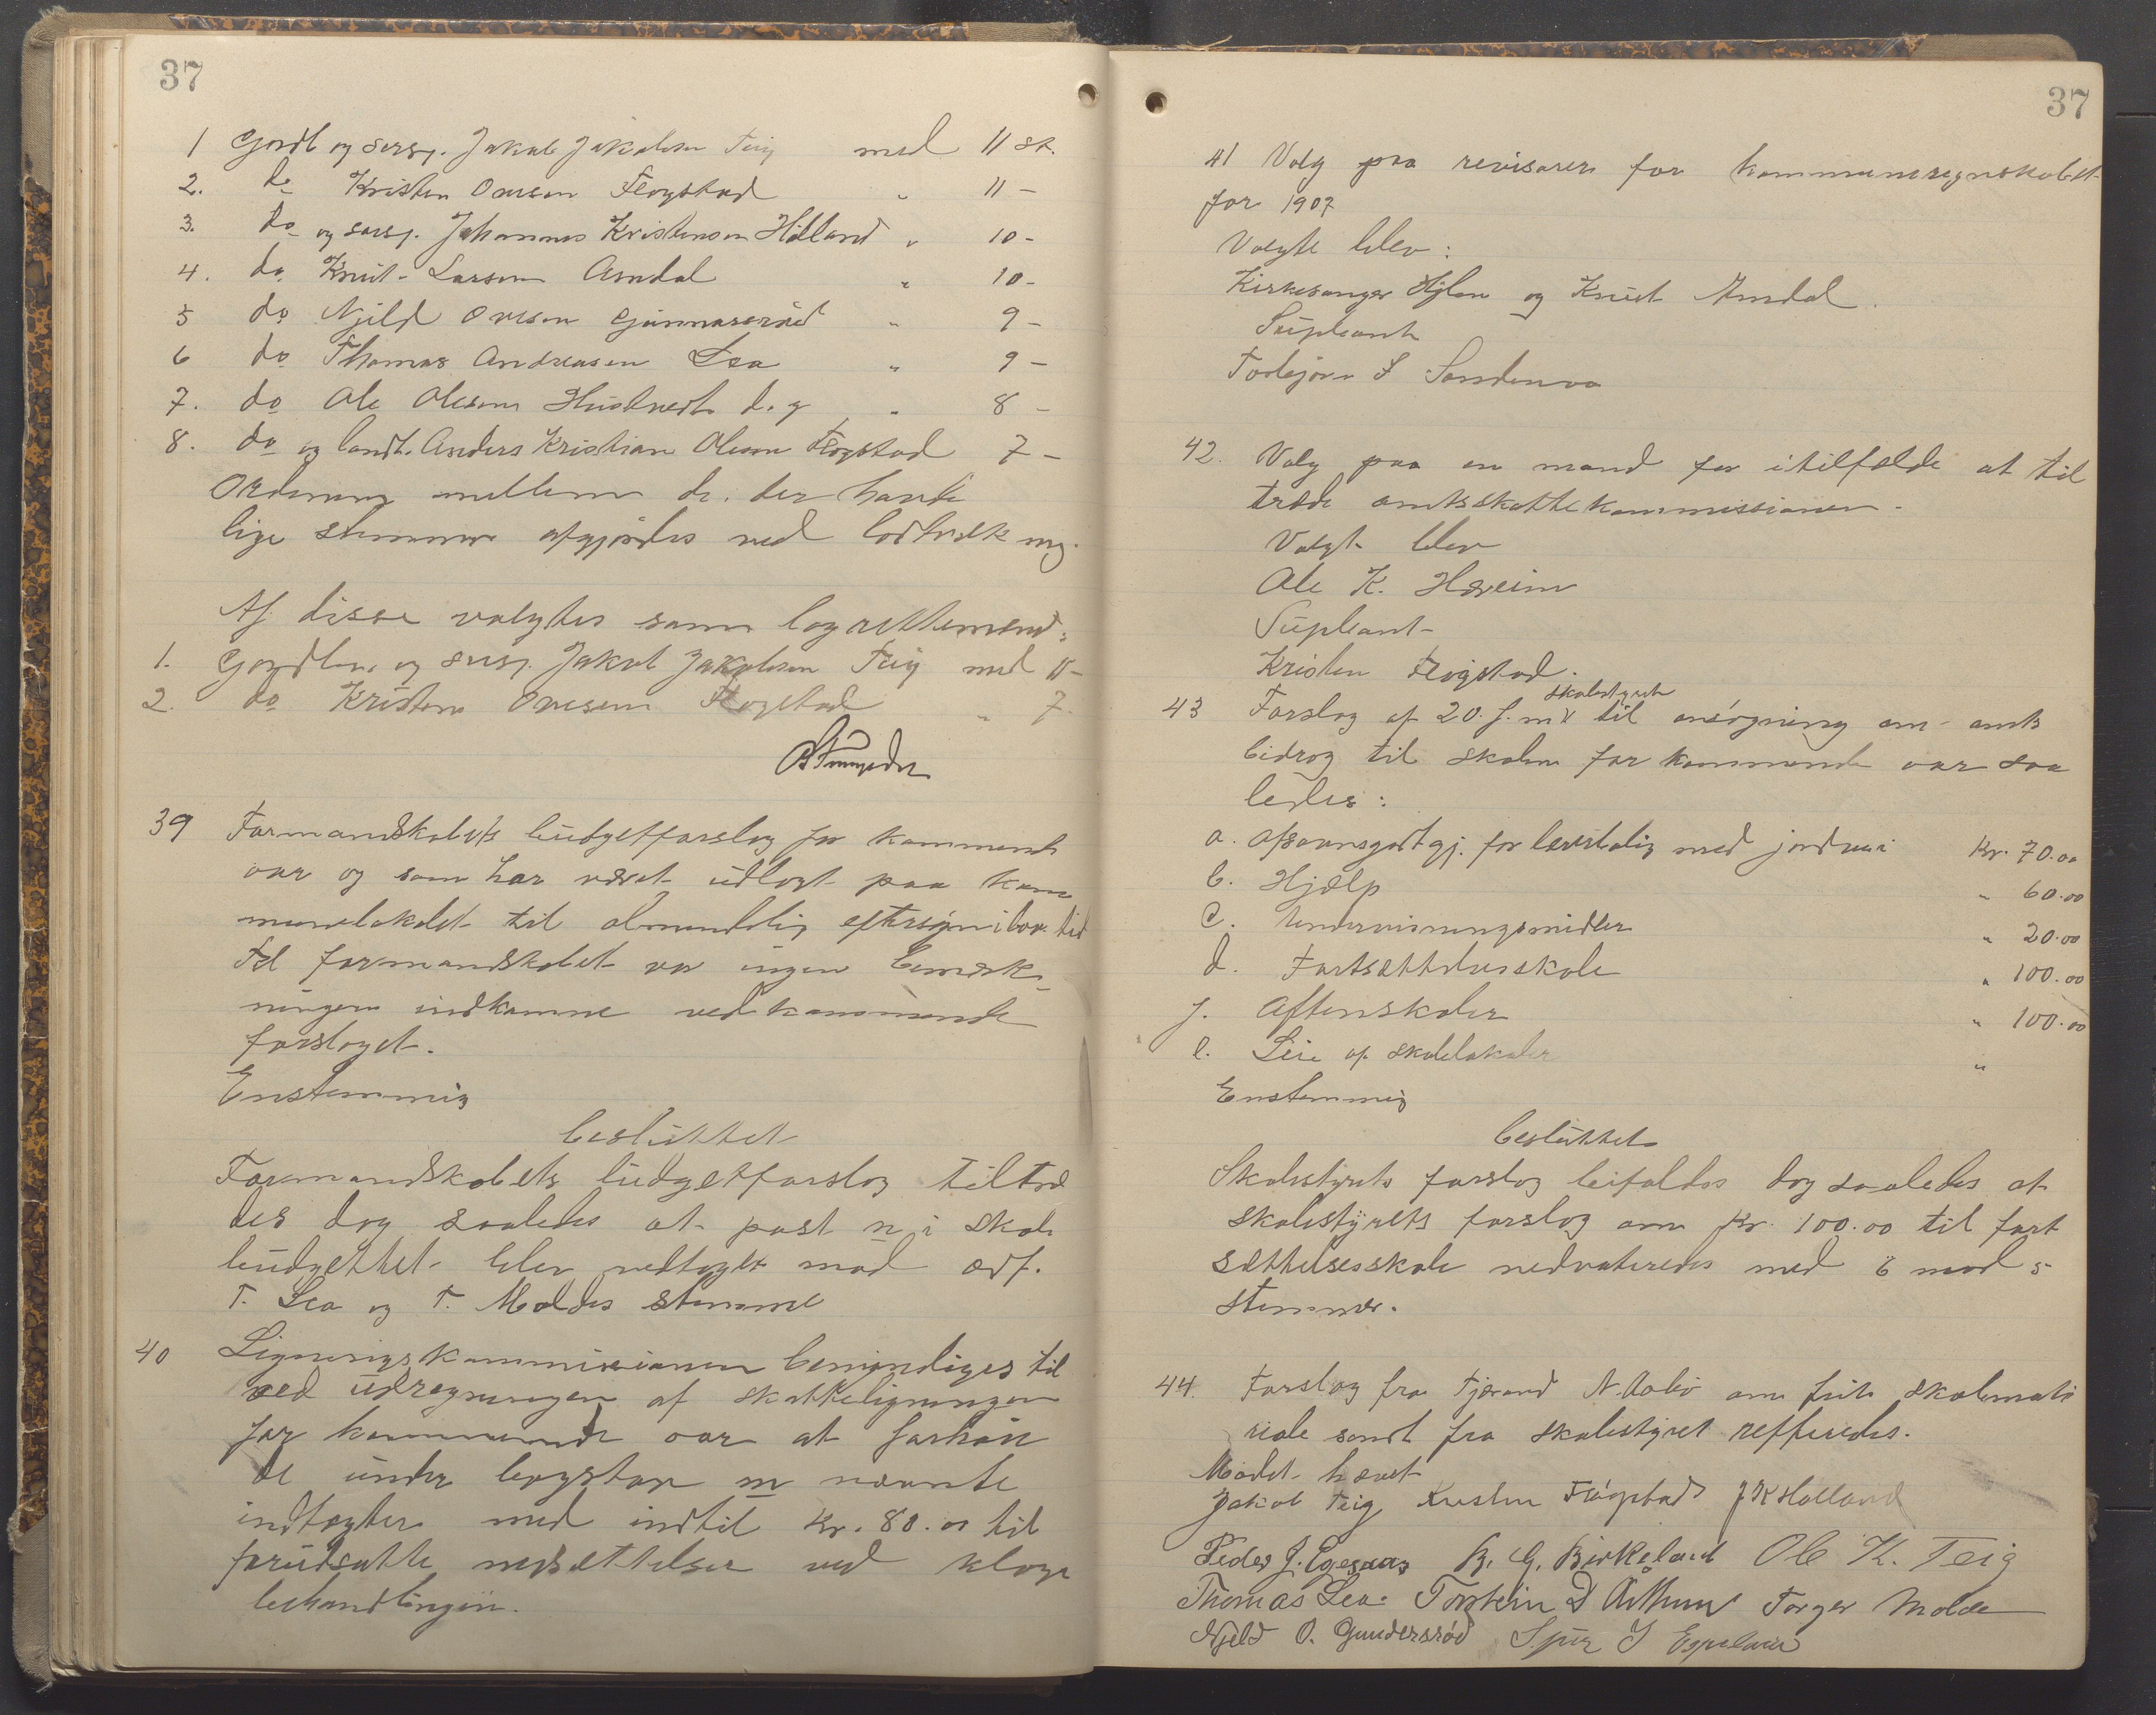 37
1 Gordb og sersj. Jakob Jakobsen Teig med 11 st.
2. do Kristen Ovesen Flogstad " 11 –
3. do og sersj. Johannes Kristenson Hålland " 10 –
4. do Knut Larsen Amdal " 10 –
5 do Njeld Ovesen " 9 –
6 do Thomas Andreasen Lea " 9 –
7. do Ole Olesen Hustvedt d. y " 8 –
8. do og landh. Anders Kristian Olesen Flogstad 7 –
Ordning mellem de. der havde
lige stemmer afgjördes ved lodtrækning.
Af disse valgtes som lagrettemænd:
1. Gordbr. og sersj. Jakob Jakobsen Teig med 11 –
2. do Kristen Ovesen Flogstad " 7.
39 Formandskabets budgetforslag for kommende
aar og som har været udlagt paa kom
munelokalet til almindelig eftersyn i lov. tid
Til formandskabet var ingen bemærk-
ninger indkomne vedkommende
forslaget.
Enstemmig
besluttet
Formandskabets budgetforslag tiltræ
des dog saaledes at post n i skole
budgettet blev vedtaget mod ordf.
T. Lea og T. Moldes stemme
40 Ligningskommissionen bemyndiges til
ved udregningen af skatteligningen
for kommende aar at forhöie
de under bogstav m nævnte
indtægter med indtil Kr. 80.00 til
forudsatte nedsættelser ved klage
behandlingen.
37
41 Valg paa revisorer for kommuneregnskabet
for 1907
Valgte blev:
Kirkesanger Hjlen og Knut Amdal.
Supleant
Torbjörn T Sandenaa
42. Valg paa en mand for i tilfælde at til
træde amtsskattekommissionen.
Valgt blev
Ole K. Høreim
Supleant
Kristen Flogstad.
43 Forslag af 20. f. m. skolestyret til ansögning om amts
bidrag til skolen for kommende aar saa
ledes:
a. Afsavnsgodtgj. for lærerbolig med jordvei Kr. 70.00
b. Hjælp " 60.00
c. Undervisningsmidler " 20.00
d. Fortsættelsesskole " 100.00
f. Aftenskoler " 100.00
e. Leie af skolelokaler "
Enstemmig
besluttet
Skolestyrets forslag bifaldes dog saaledes at
skolestyrets forslag om Kr. 100.00 til fort
sættelsesskole nedvoteredes med 6 mod 5
stemmer.
44. Forslag fra Tjerand N. Dalve om frit skolemate
riale sendt fra skolestyret reffeeredes.
Mödet hævet
Jakob Teig Kristen Flógstad J K Holland
Peder J. Egesaas B. G. Birkeland Ole K. Teig
Thomas Lea. Torstein D Torger Molde
Njeld O. Gundersröd